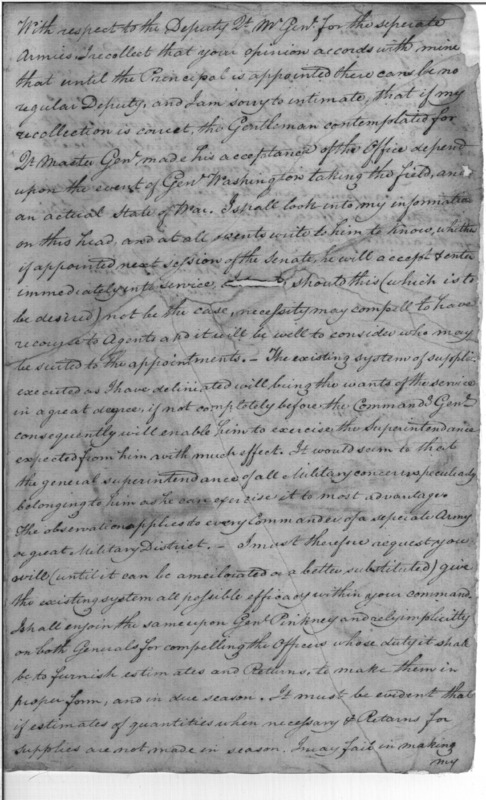 With respect to the Deputy Qt. Mr. Genl. for the seperate
Armies I recollect that your opinion accords with mine
that until the Prencepal is appointed there can be no
regular Deputy, and I am sorry to intimate, that if my
recollection is correct, the Gentleman contemplated for
Qt. Master Genl. made his acceptance of the Office depend
upon the event of Genl. Washington taking the field, and
an actual State of War. I shall look into my information
on this head, and at all events write to him to know, whether
if appointed next session of the Senate, he will accept & enter
immediately into service, should this (which is to
be desired) not be the case, necessity may compell to have
recourse to Agents and it will be well to consider who may
be suited to the appointments. — The existing system of supplies
executed as I have deliniated will bring the wants of the service
in a great degree, if not completely before the Commandg. Genl.
consequently will enable him to exercise the Superintendance
expected from him with much effect. It would seem to that
the general superintendance of all Military concerns, peculiarly
belonging to him as he can exercise it to most advantage.
The observation applies to every Commander of a seperate Army
or great Military District. — I must therefore request you
will (until it can be ameliorated or a better substituted) give
the existing system all possible efficacy within your command.
I shall enjoin the same upon Genl. Pinkney and rely implicitly
on both Generals for compelling the Officers whose duty it shall
be to furnish estimates and Returns, to make them in
proper form, and in due season. It must be evident that
if estimates of quantities when necessary & Returns for
supplies are not made in season, I may fail in making
my